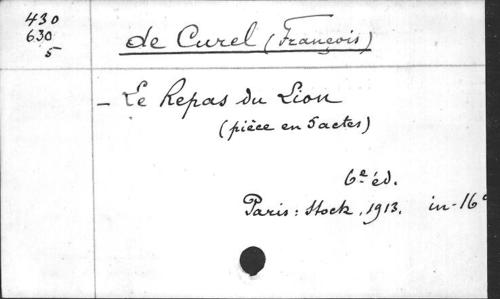 430
630
5
de Curel (François)
– Le Repas du Lion
(pièce en 5 actes)
6e éd.
Paris: Stock, 1913. in-16°